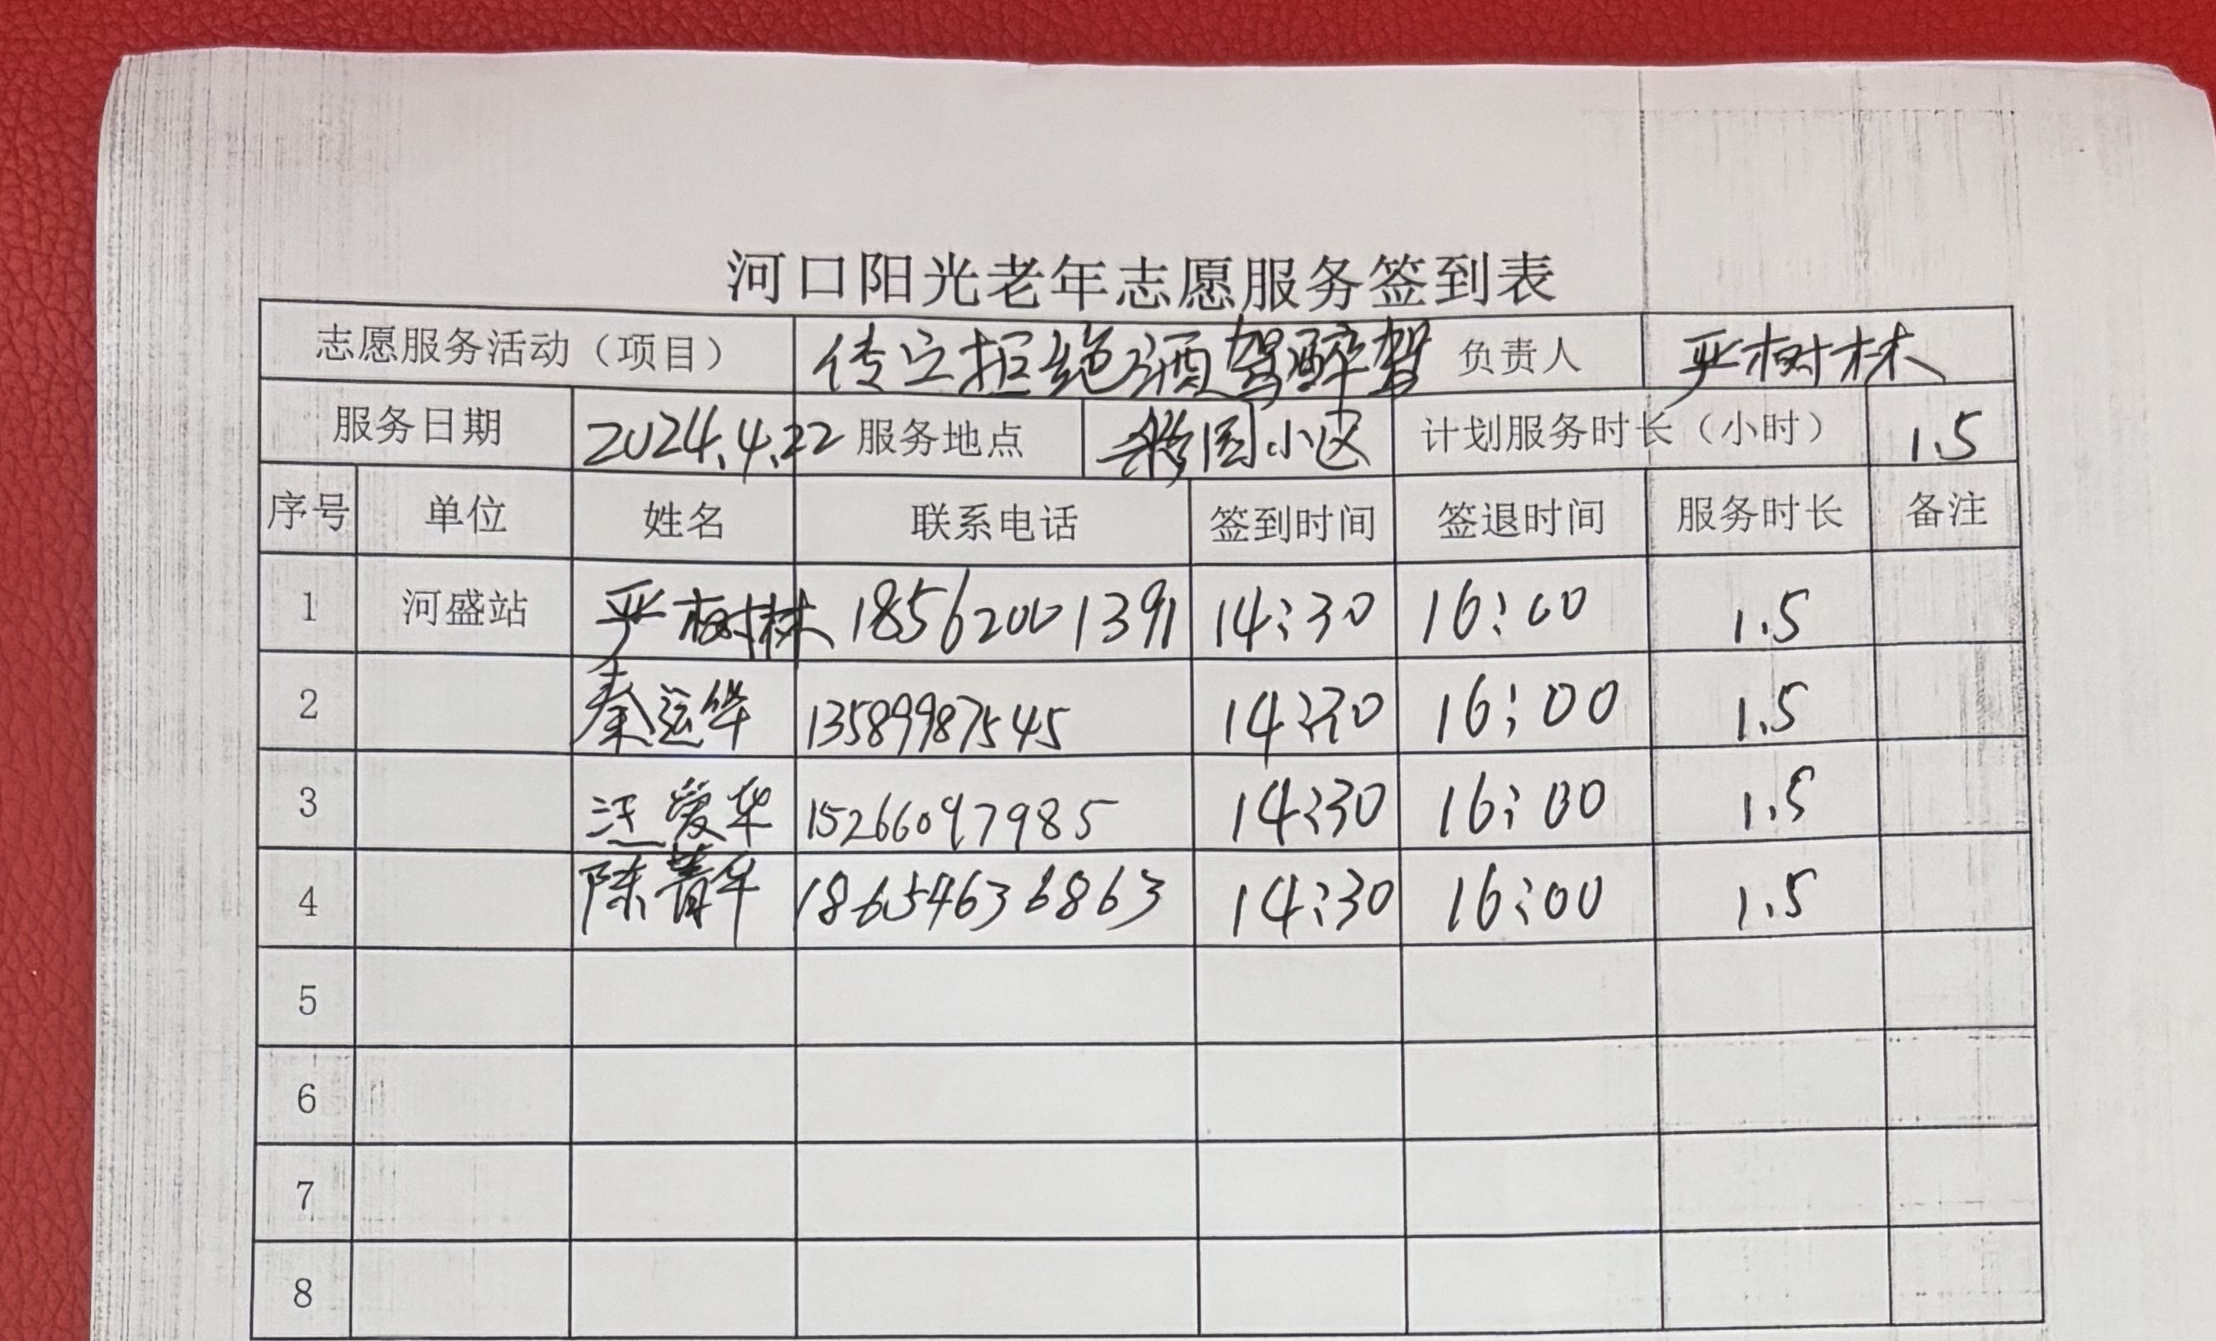 河口阳光老年志愿服务签到表
志愿服务活动（项目） 传立拒绝酒驾醉驾 负责人 严树林
服务日期 2024.4.22 服务地点 小区 计划服务时长（小时） 1.5
序号 单位 姓名 联系电话 签到时间 签退时间 服务时长 备注
1 河盛站 严树林 18562001391 14:30 16:00 1.5
2 秦运华 13589987545 14:30 16:00 1.5
3 汪爱华 15266097985 14:30 16:00 1.5
4 陈菁华 18654636863 14:30 16:00 1.5
5
6
7
8